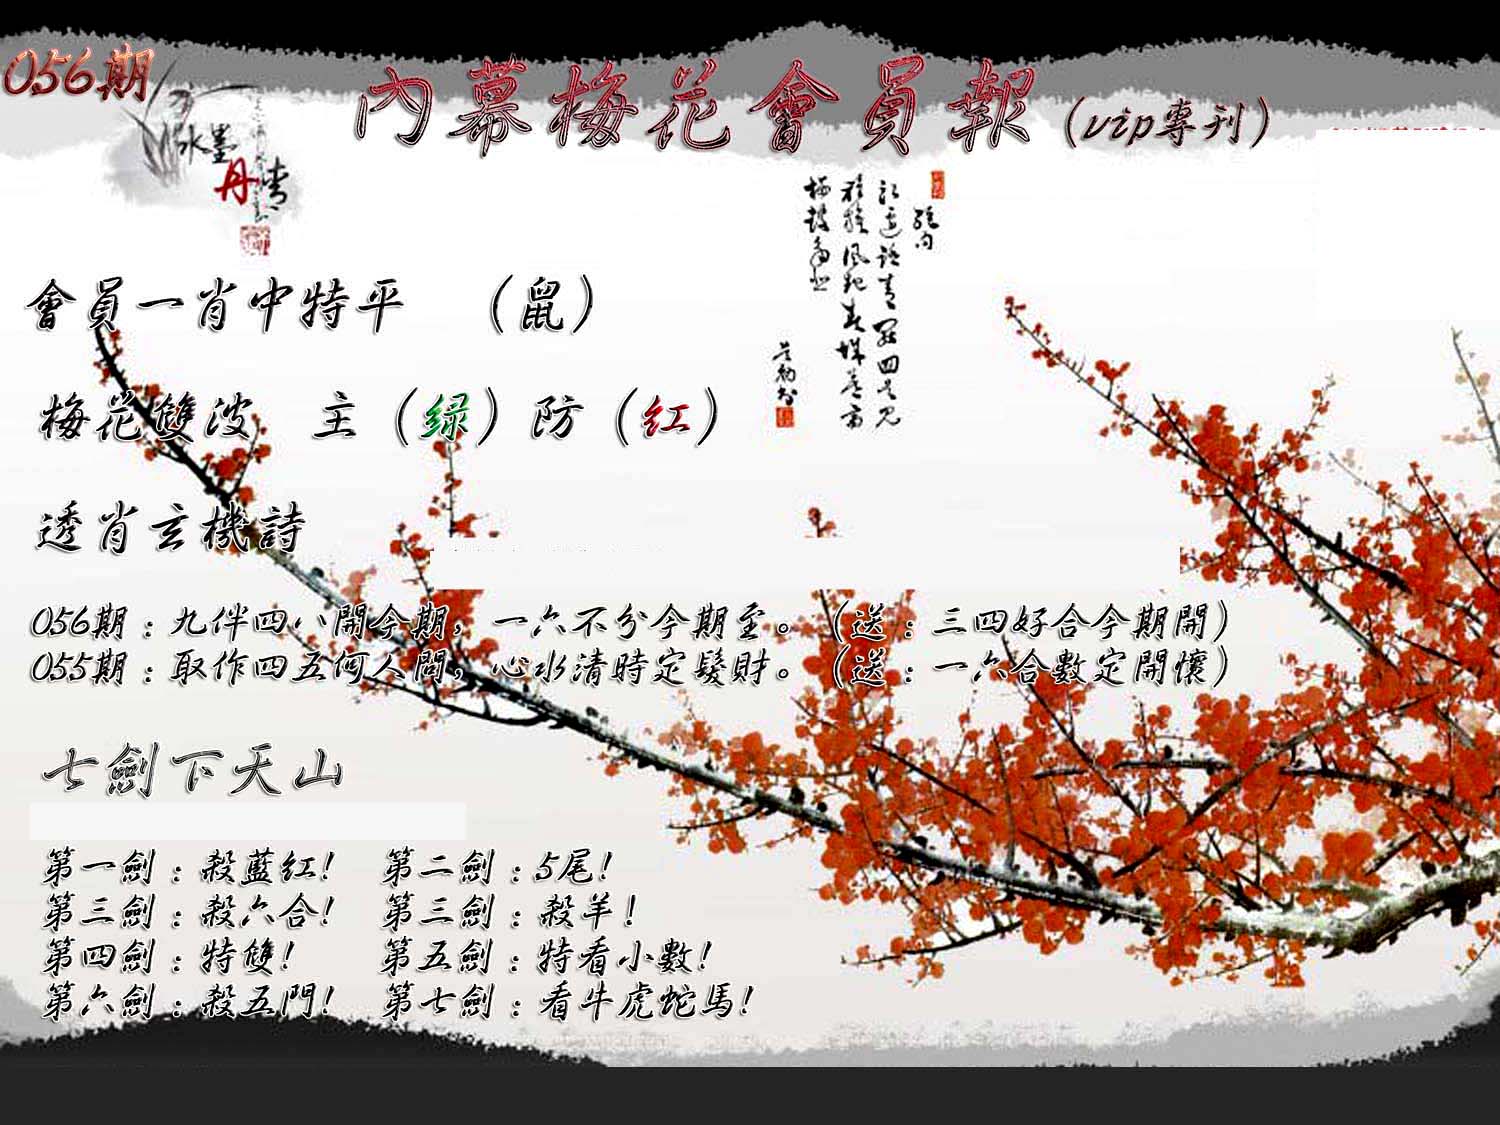 056期
內幕梅花會員報（vip專刊）
水墨
丹青
會員一肖中特平　（鼠）
梅花雙波　主（綠）防（紅）
透肖玄機詩
056期：九伴四八開今期，一六不分今期至。（送：三四好合今期開）
055期：取作四五何人問，心水清時定髮財。（送：一六合數定開懷）
七劍下天山
第一劍：殺藍紅！　第二劍：5尾！
第三劍：殺六合！　第三劍：殺羊！
第四劍：特雙！　第五劍：特看小數！
第六劍：殺五門！　第七劍：看牛虎蛇馬！